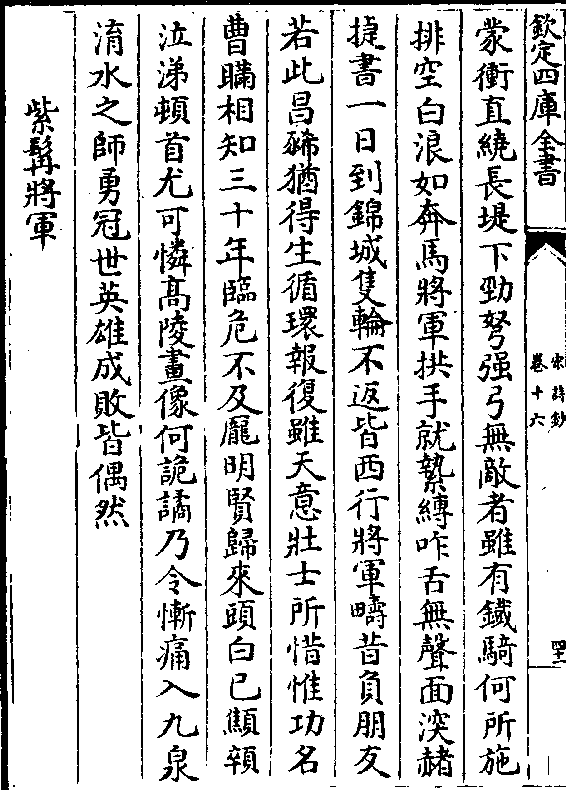 欽定四庫全書
宋詩鈔
卷十六
四十一
蒙衝直繞長堤下勁弩强弓無敵者雖有鐵騎何所施
排空白浪如奔馬將軍拱手就縶縛咋舌無聲面深赭
捷書一日到錦城隻輪不返皆西行將軍疇昔負朋友
若此昌豨猶得生循環報復雖天意壯士所惜惟功名
曹瞞相知三十年臨危不及龎明賢歸來頭白已顦顇
泣涕頓首尤可憐髙陵畫像何詭譎乃令慚痛入九泉
淯水之師勇冠世英雄成敗皆偶然
紫髯將軍